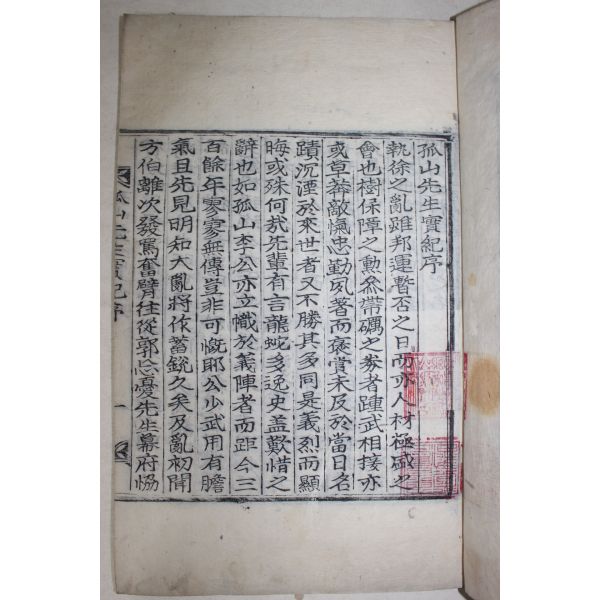 孤山先生實紀序
執徐之亂雖邦運暫否之日而亦人材極盛之
會也樹保障之勳叅帶礪之券者踵武相接亦
或草莽敵愾忠勤夙著而褒賞未及於當日名
蹟沉湮於來世者又不勝其多同是義烈而顯
晦或殊何㢤先輩有言龍蛇多逸史盖歎惜之
辭也如孤山李公亦立幟於義陣者而距今三
百餘年寥寥無傳豈非可慨耶公少武用有膽
氣且先見明知大亂將作蓄銃久矣及亂初聞
方伯離次發罵奮臂往從郭忘憂先生幕府恊
孤山先生實紀序
一